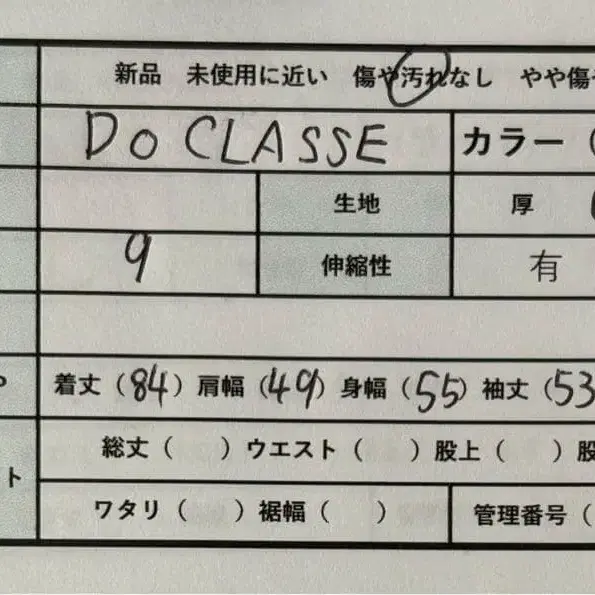 新品 未使用に近い 傷や汚れなし やや傷
DoCLASSE カラー(
生地 厚
9 伸縮性 有
着丈(84) 肩幅(49) 身幅(55) 袖丈(53
総丈( ) ウエスト( ) 股上( ) 股
ト
ワタリ( ) 裾幅( ) 管理番号(